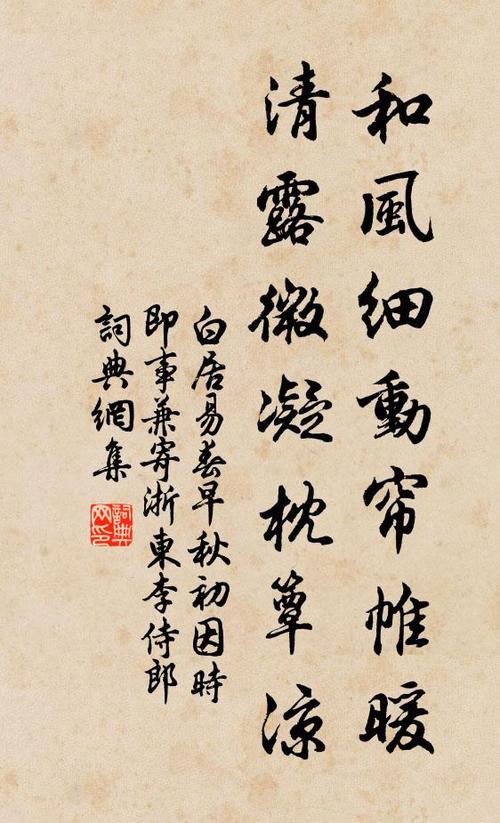 和風細動帘帷暖
清露微凝枕簟涼
白居易春早秋初因時
即事兼寄浙東李侍郎
詞典網集
詞典
网印